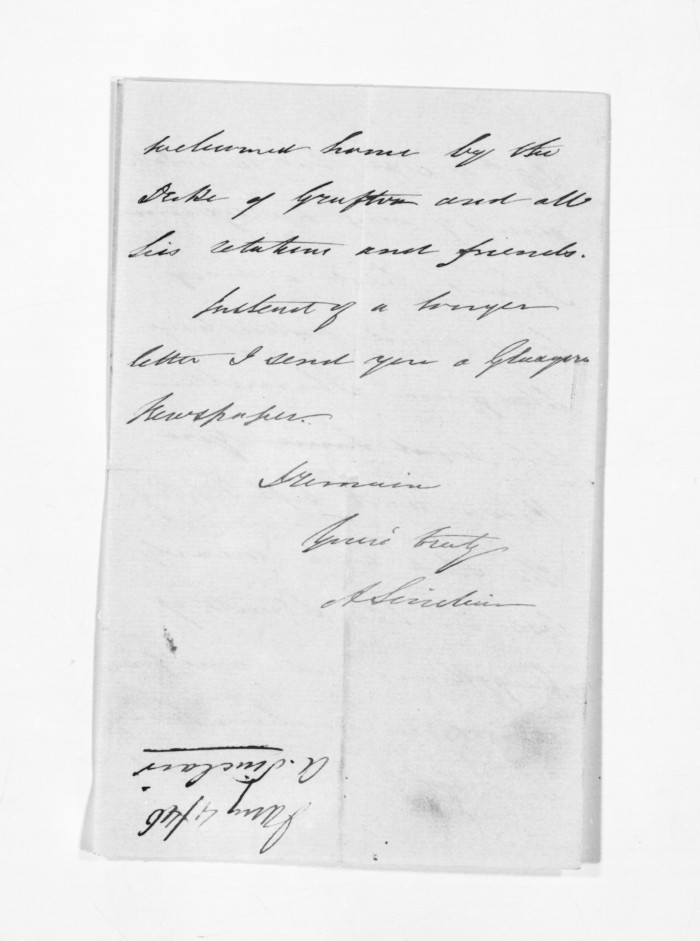 welcomed home by the
Duke of Grafton and all
his relations and friends.
Instead of a longer
letter I send you a Glasgow
Newspaper.
I remain
Yours truly
A Sinclair
A. Sinclair
Jany 4/46